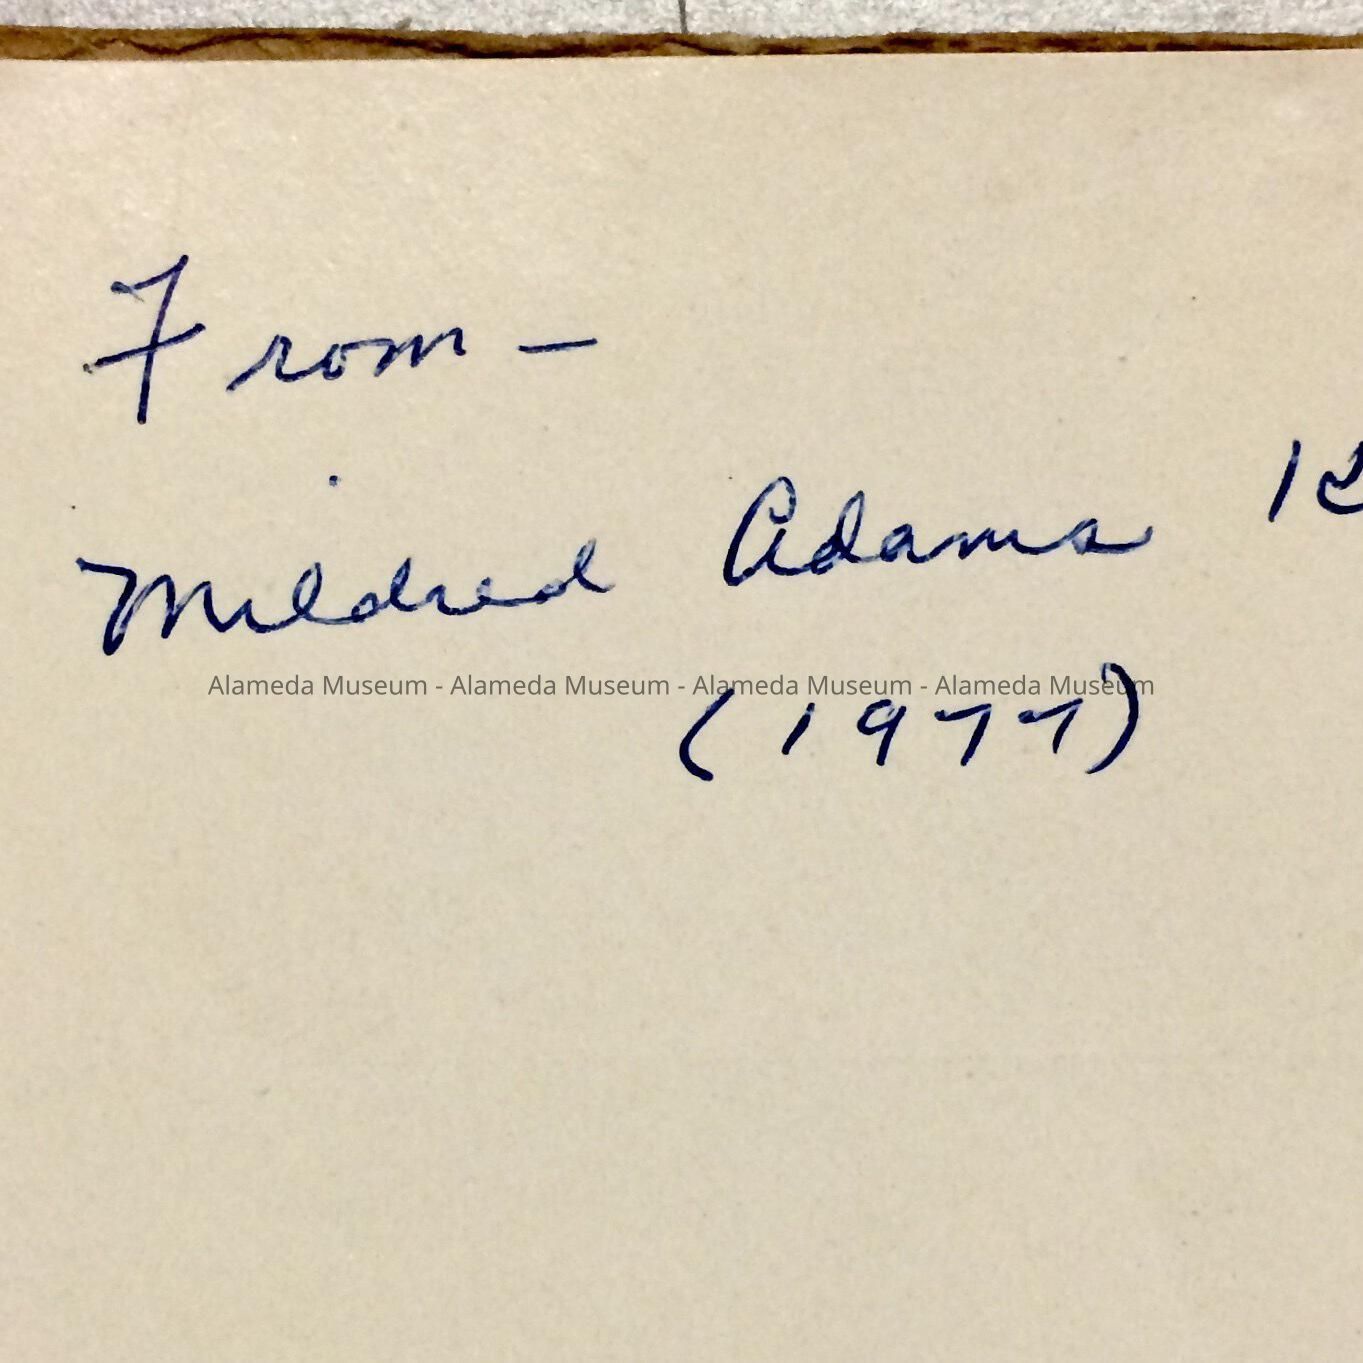 From —
Mildred Adams 12
Alameda Museum - Alameda Museum - Alameda Museum - Alameda Museum
(1977)